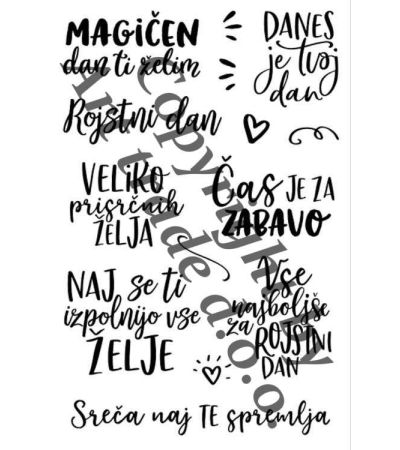 MAGIČEN
dan ti želim
DANES
je tvoj
dan
Rojstni dan
VELIKO
prisrčnih
ŽELJA
Čas JE ZA
ZABAVO
NAJ se ti
izpolnijo vse
ŽELJE
Vse
najboljše
za ROJSTNI
DAN
Sreča naj TE spremlja
Copyright by
Art itude d.o.o.